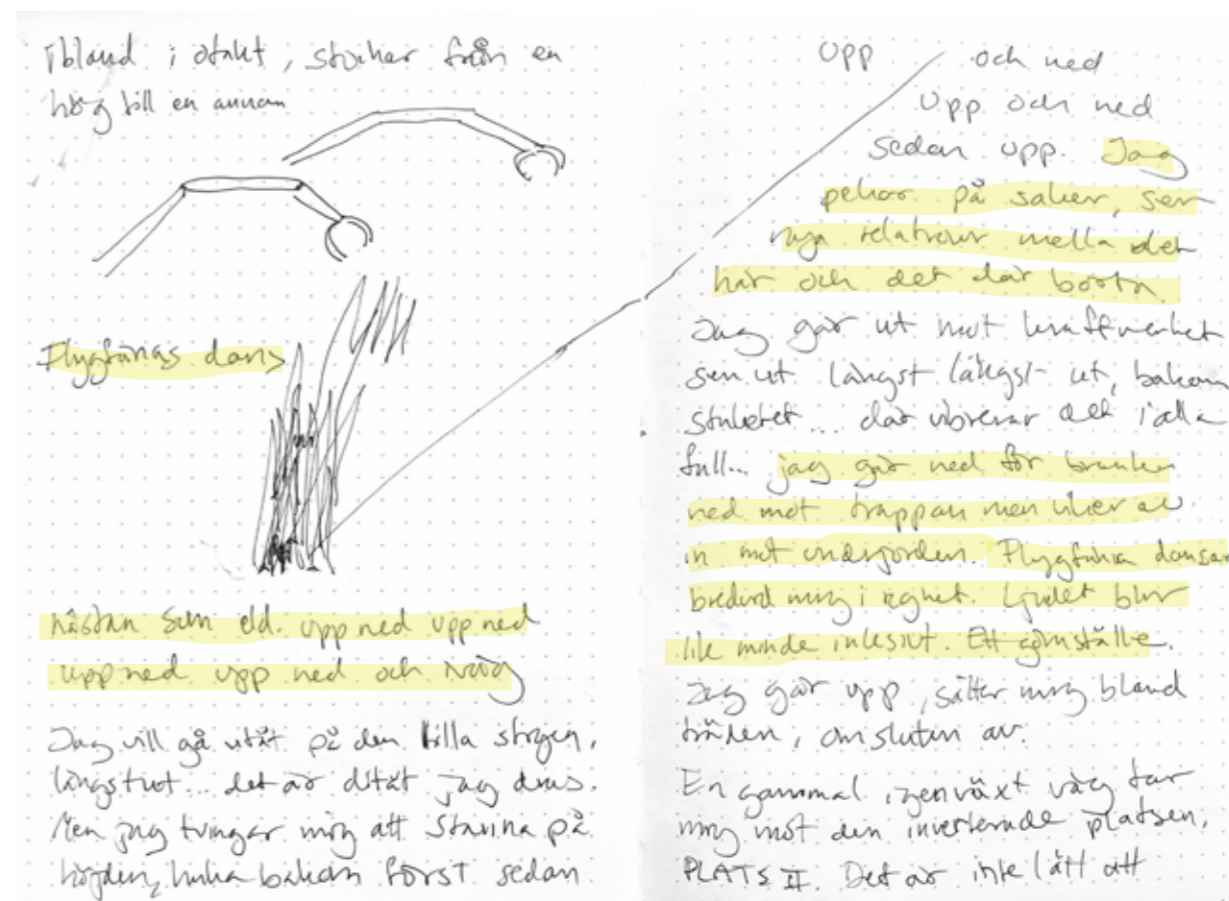 ibland i otakt, stockar från en
hög till en annan
Flygfänas dans
nästan som eld. upp ned upp ned
upp ned upp ned och iväg
Jag vill gå utåt på den lilla stigen,
längst ut... det är ditåt jag dras.
Men jag tvingar mig att stanna på
höjden, huka bakom först sedan
upp och ned
upp och ned
sedan upp. Jag
pekar på saker, ser
nya relationer mella det
här och det där borta.
Jag går ut mot kraftverket
sen ut längst längst ut, bakom
staketet... där vibrerar det i alla
fall... jag går ned för branken
ned mot trappan men viker av
in mot underjorden. Flygfäna dansar
bredvid mig i regnet. Ljudet blir
lite minde intesivt. Ett gömställe.
Jag går upp, sätter mig bland
träden, omsluten av.
En gammal igenväxt väg tar
mig mot den inverterade platsen,
PLATS II. Det är inte lätt att